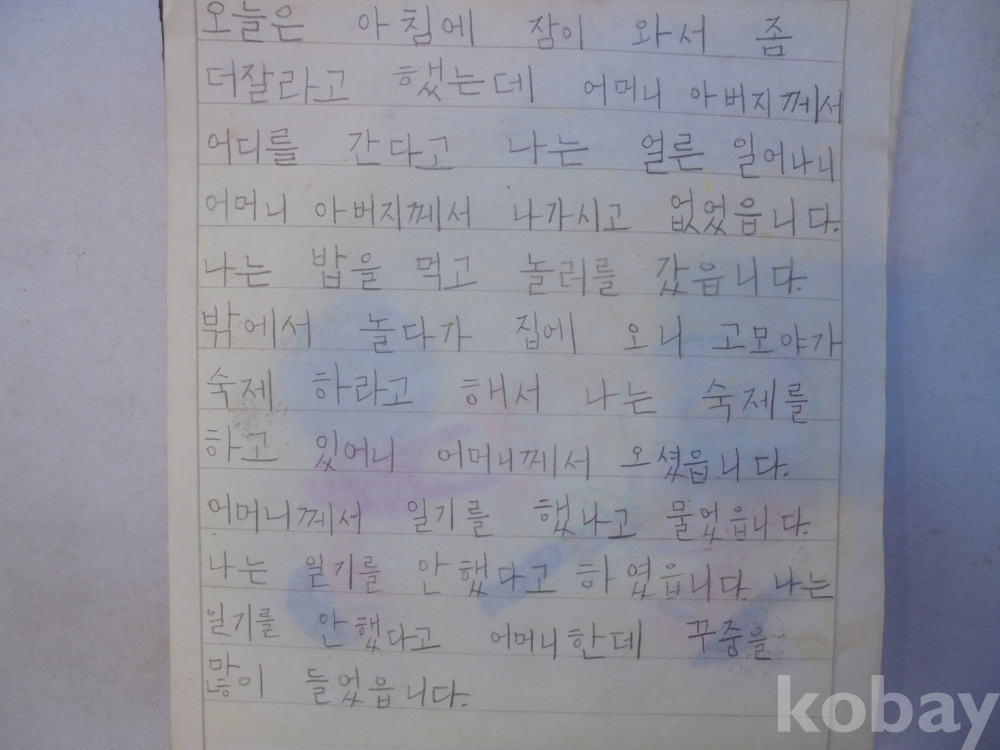 오늘은 아침에 잠이 와서 좀
더잘라고 했는데 어머니 아버지께서
어디를 간다고 나는 얼른 일어나니
어머니 아버지께서 나가시고 없었읍니다.
나는 밥을 먹고 놀러를 갔읍니다.
밖에서 놀다가 집에 오니 고모야가
숙제 하라고 해서 나는 숙제를
하고 있어니 어머니께서 오셨읍니다.
어머니께서 일기를 했나고 물었읍니다.
나는 일기를 안했다고 하였읍니다. 나는
일기를 안했다고 어머니한데 꾸중을
많이 들었읍니다.
kobay